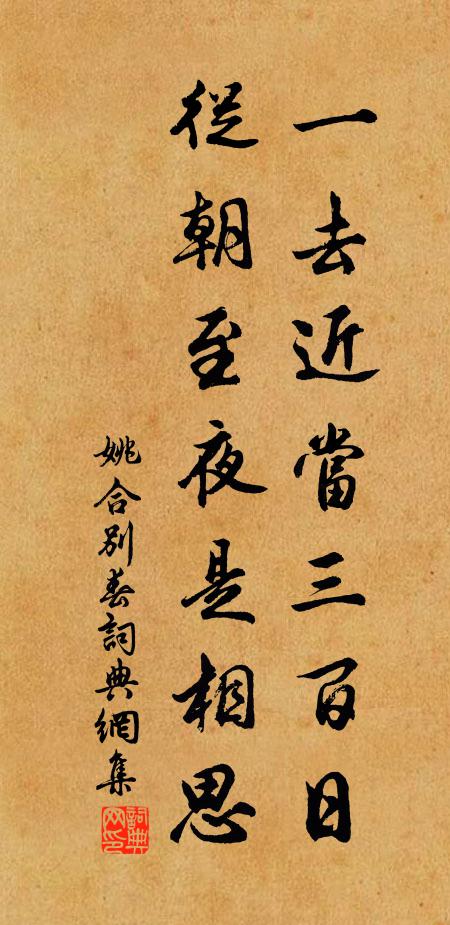 一去近當三百日
從朝至夜是相思
姚合別春詞典網集
詞典网印